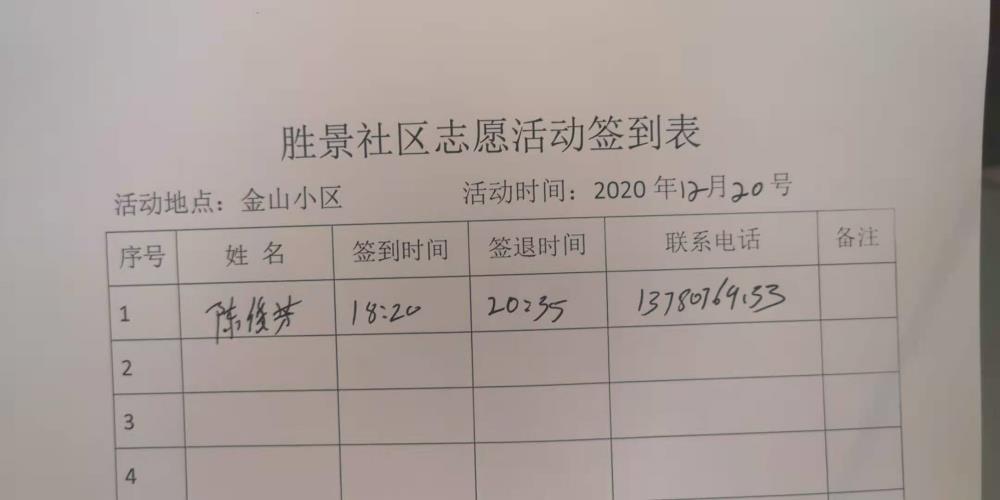 胜景社区志愿活动签到表
活动地点：金山小区 活动时间：2020年12月20号
序号 姓名 签到时间 签退时间 联系电话 备注
1 陈俊芳 18:20 20:35
2
3
4